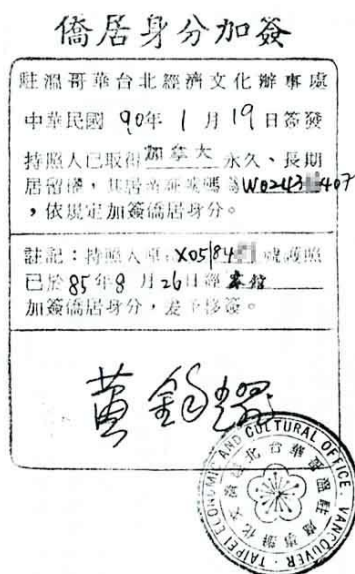 僑居身分加簽
駐溫哥華台北經濟文化辦事處
中華民國 90年 1 月 19 日簽發
持照人已取得 加拿大 永久、長期
居留權，其居留証號碼為W0243 407
，依規定加簽僑居身分。
註記：持照人原 X05184 號護照
已於85年8月26日經 本館
加簽僑居身分，茲予移簽。
TAIPEI ECONOMIC AND CULTURAL OFFICE, VANCOUVER